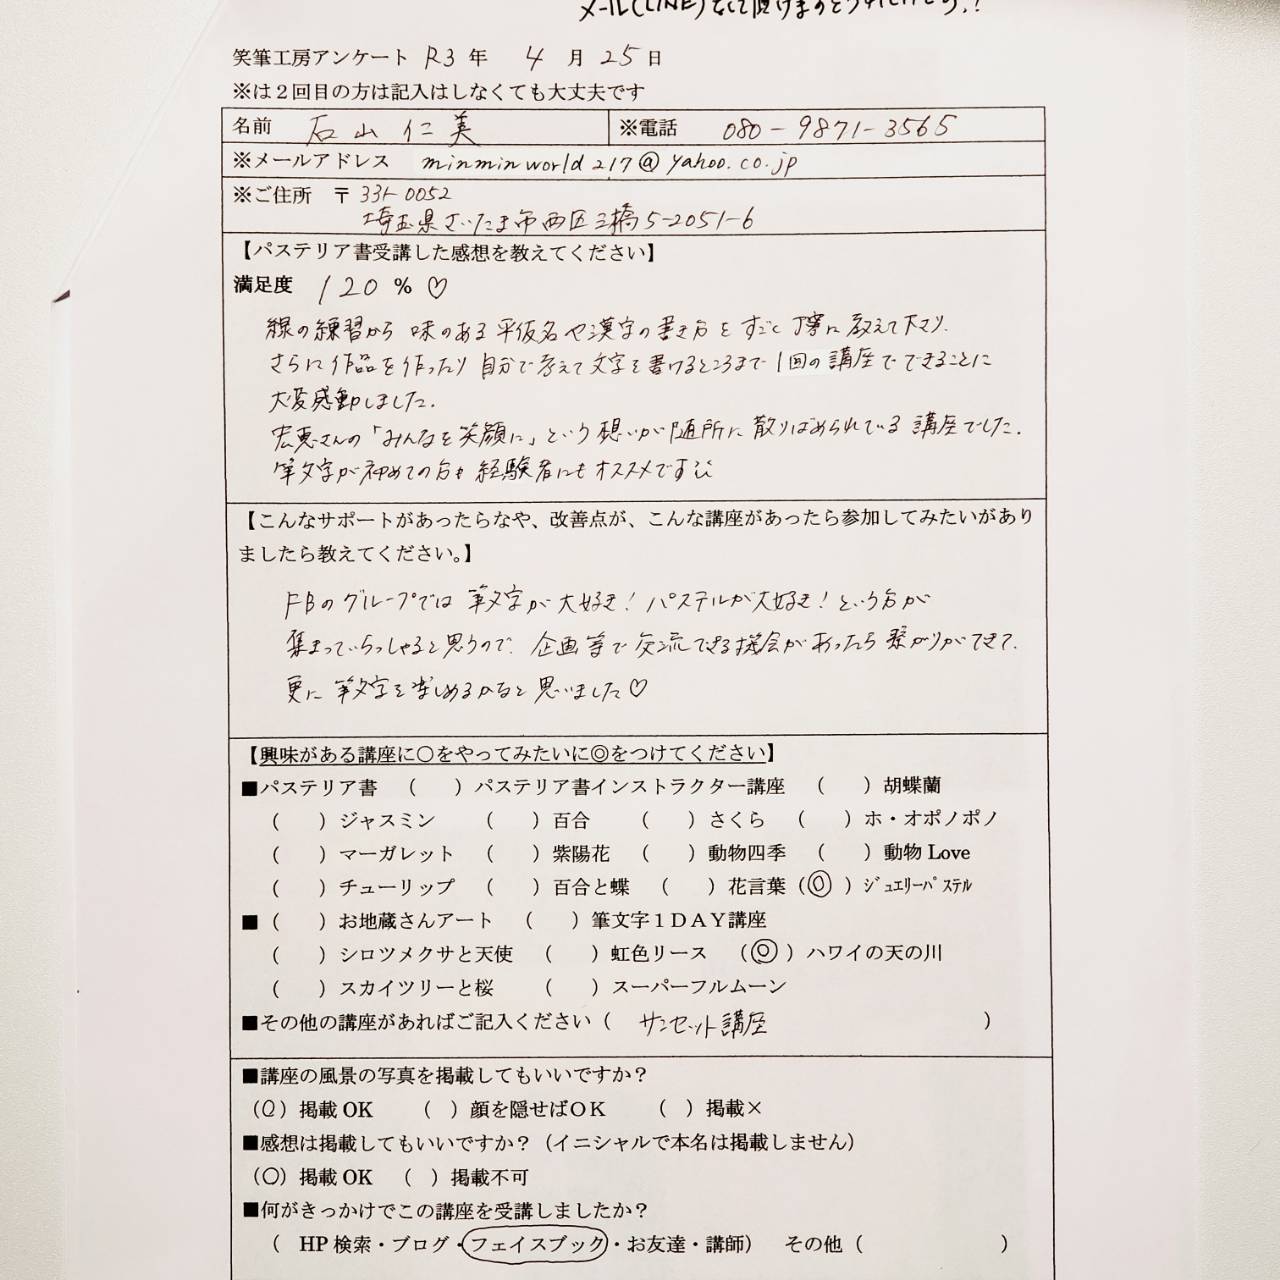 メール(LINE)などで頂けますのでしょうか？！
笑筆工房アンケート R3年 4月25日
※は２回目の方は記入はしなくても大丈夫です
名前 石山仁美 ※電話 080-9871-3565
※メールアドレス minminworld217@yahoo.co.jp
※ご住所 〒331-0052
埼玉県さいたま市西区三橋5-2051-6
【パステリア書受講した感想を教えてください】
満足度 120 % ♡
線の練習から 味のある平仮名や漢字の書き方をすごく丁寧に教えて下さり、
さらに作品を作ったり自分で考えて文字を書けるところまで1回の講座でできることに
大変感動しました.
宏恵さんの「みんなを笑顔に」という想いが随所に散りばめられている講座でした.
筆文字が初めての方も経験者にもオススメです
【こんなサポートがあったらなや、改善点が、こんな講座があったら参加してみたいがあり
ましたら教えてください。】
FBのグループでは筆文字が大好き！パステルが大好き！という方が
集まっていらっしゃると思うので、企画等で交流できる機会があったら繋がりができて、
更に筆文字を楽しめるかなと思いました♡
【興味がある講座に○をやってみたいに◎をつけてください】
■パステリア書 （　）パステリア書インストラクター講座 （　）胡蝶蘭
（　）ジャスミン （　）百合 （　）さくら （　）ホ・オポノポノ
（　）マーガレット （　）紫陽花 （　）動物四季 （　）動物 Love
（　）チューリップ （　）百合と蝶 （　）花言葉（◎）ｼﾞｭエリーﾊﾟｽﾃﾙ
■（　）お地蔵さんアート （　）筆文字１ＤＡＹ講座
（　）シロツメクサと天使 （　）虹色リース （◎）ハワイの天の川
（　）スカイツリーと桜 （　）スーパーフルムーン
■その他の講座があればご記入ください（ サンセット講座 ）
■講座の風景の写真を掲載してもいいですか？
（○）掲載 OK （　）顔を隠せばＯＫ （　）掲載×
■感想は掲載してもいいですか？（イニシャルで本名は掲載しません）
（○）掲載 OK （　）掲載不可
■何がきっかけでこの講座を受講しましたか？
（ HP 検索・ブログ・フェイスブック・お友達・講師） その他（　）